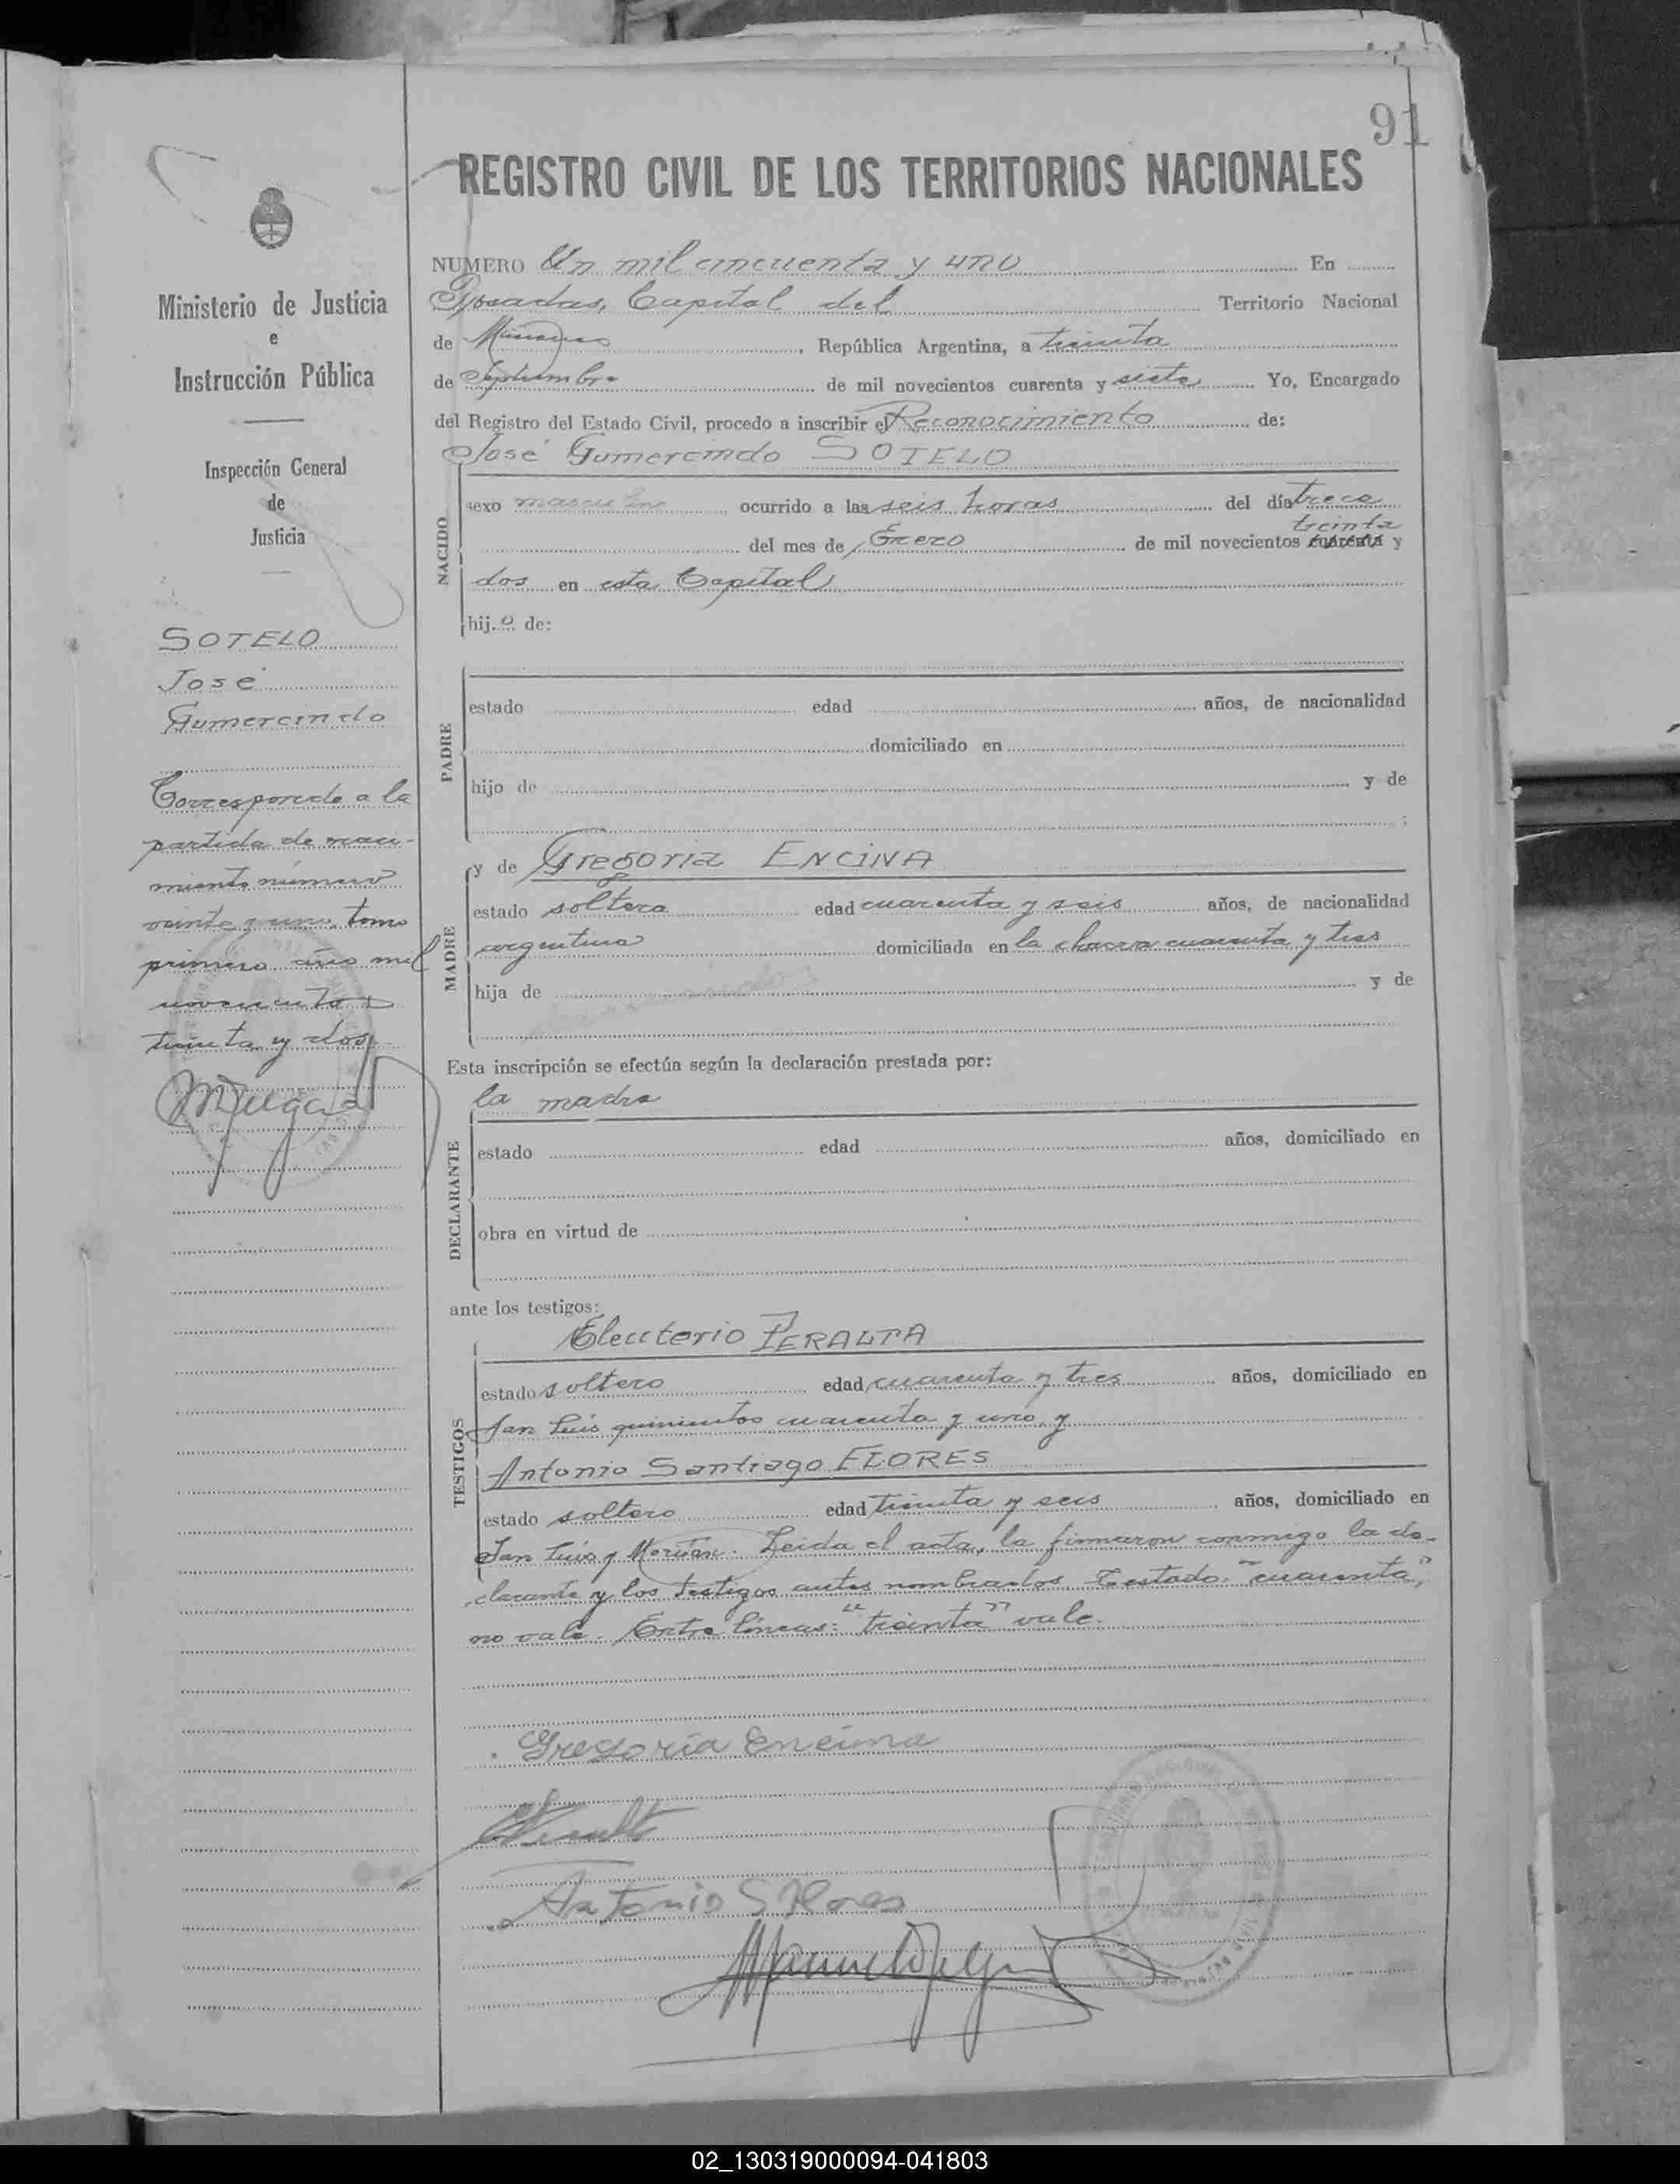 91
REGISTRO CIVIL DE LOS TERRITORIOS NACIONALES
Ministerio de Justicia
e
Instrucción Pública
Inspección General
de
Justicia
SOTELO
José
Gumercindo
Corresponde a la
partida de naci-
miento número
veinte y uno, tomo
primero año mil
novecientos
treinta y dos
NUMERO Un mil cincuenta y uno En
Posadas, Capital del Territorio Nacional
de Misiones, República Argentina, a treinta
de Septiembre de mil novecientos cuarenta y siete Yo, Encargado
del Registro del Estado Civil, procedo a inscribir el Reconocimiento de:
José Gumercindo SOTELO
NACIDO
sexo masculino ocurrido a las seis horas del día trece
treinta
del mes de Enero de mil novecientos cuarenta y
dos en esta Capital
hij.o de:
PADRE
estado edad años, de nacionalidad
domiciliado en
hijo de y de
;
MADRE
y de Gregoria ENCINA
estado soltera edad cuarenta y seis años, de nacionalidad
argentina domiciliada en la chacra cuarenta y tres
hija de y de
Esta inscripción se efectúa según la declaración prestada por:
la madre
DECLARANTE
estado edad años, domiciliado en
obra en virtud de
ante los testigos:
TESTIGOS
Eleuterio PERALTA
estado soltero edad cuarenta y tres años, domiciliado en
San Luis quinientos cuarenta y uno y
Antonio Santiago FLORES
estado soltero edad treinta y seis años, domiciliado en
San Luis y . Leida el acta, la firmaron conmigo la de-
clarante y los testigos antes nombrados. Testado: "cuarenta",
no vale. Entre líneas: "treinta" vale.
Gregoria Encina
Antonio S Flores
02_130319000094-041803